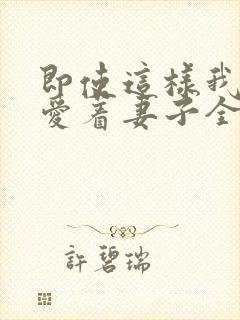 即使這樣我
愛着妻子全
許碧瑞